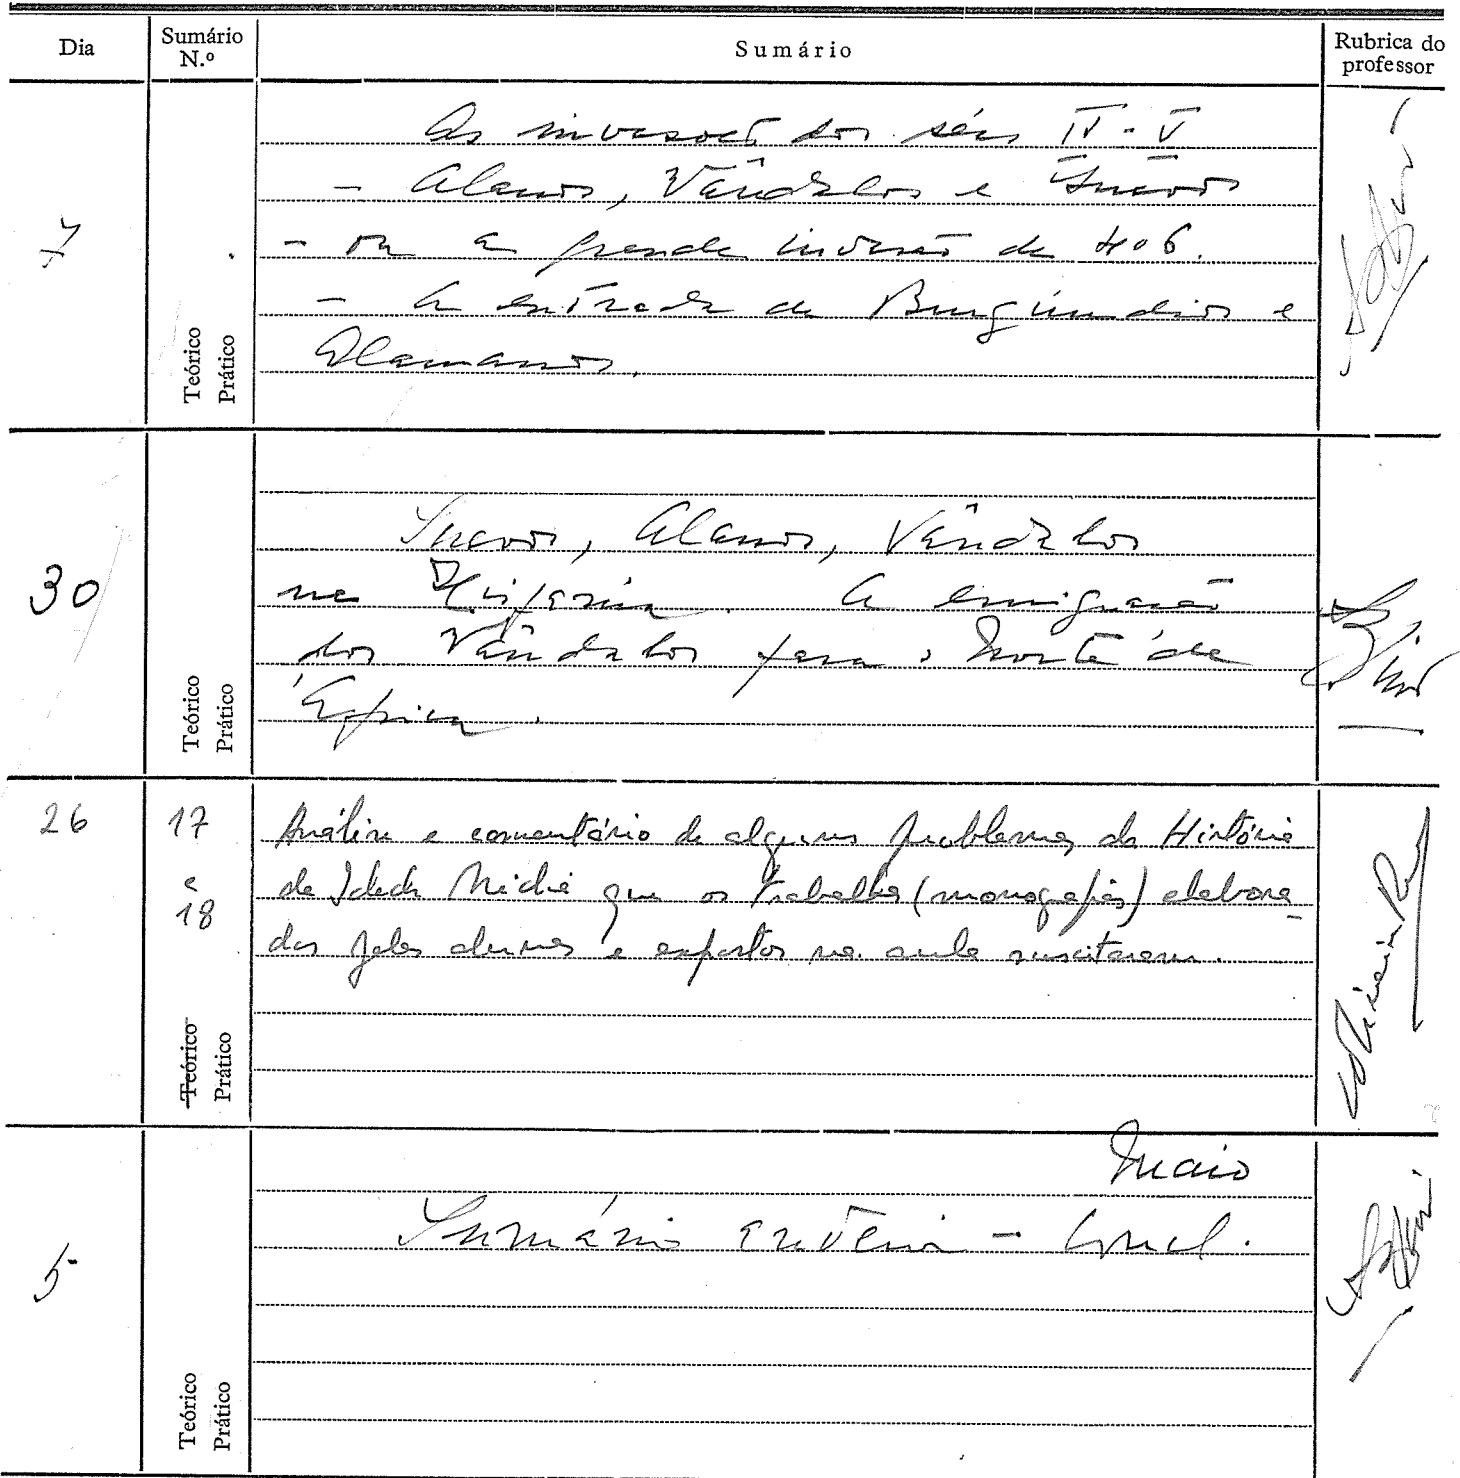 Dia
Sumário N.º
Sumário
Rubrica do professor
7
Teórico
Prático
As invasões dos sécs IV - V
- Alanos, Vândalos e Suevos
- a grande invasão de 406.
- A entrada de Burgúndios e
Alamanos.
30
Teórico
Prático
Suevos, Alanos, Vândalos
na Hispania. A emigração
dos Vândalos para o Norte de
África.
26
17
e
18
Teórico
Prático
Análise e comentário de alguns problemas da História
da Idade Média que os trabalhos (monografias) elabora-
dos pelos alunos e expostos na aula suscitaram.
5
Teórico
Prático
Maio
Sumário anterior - Concl.